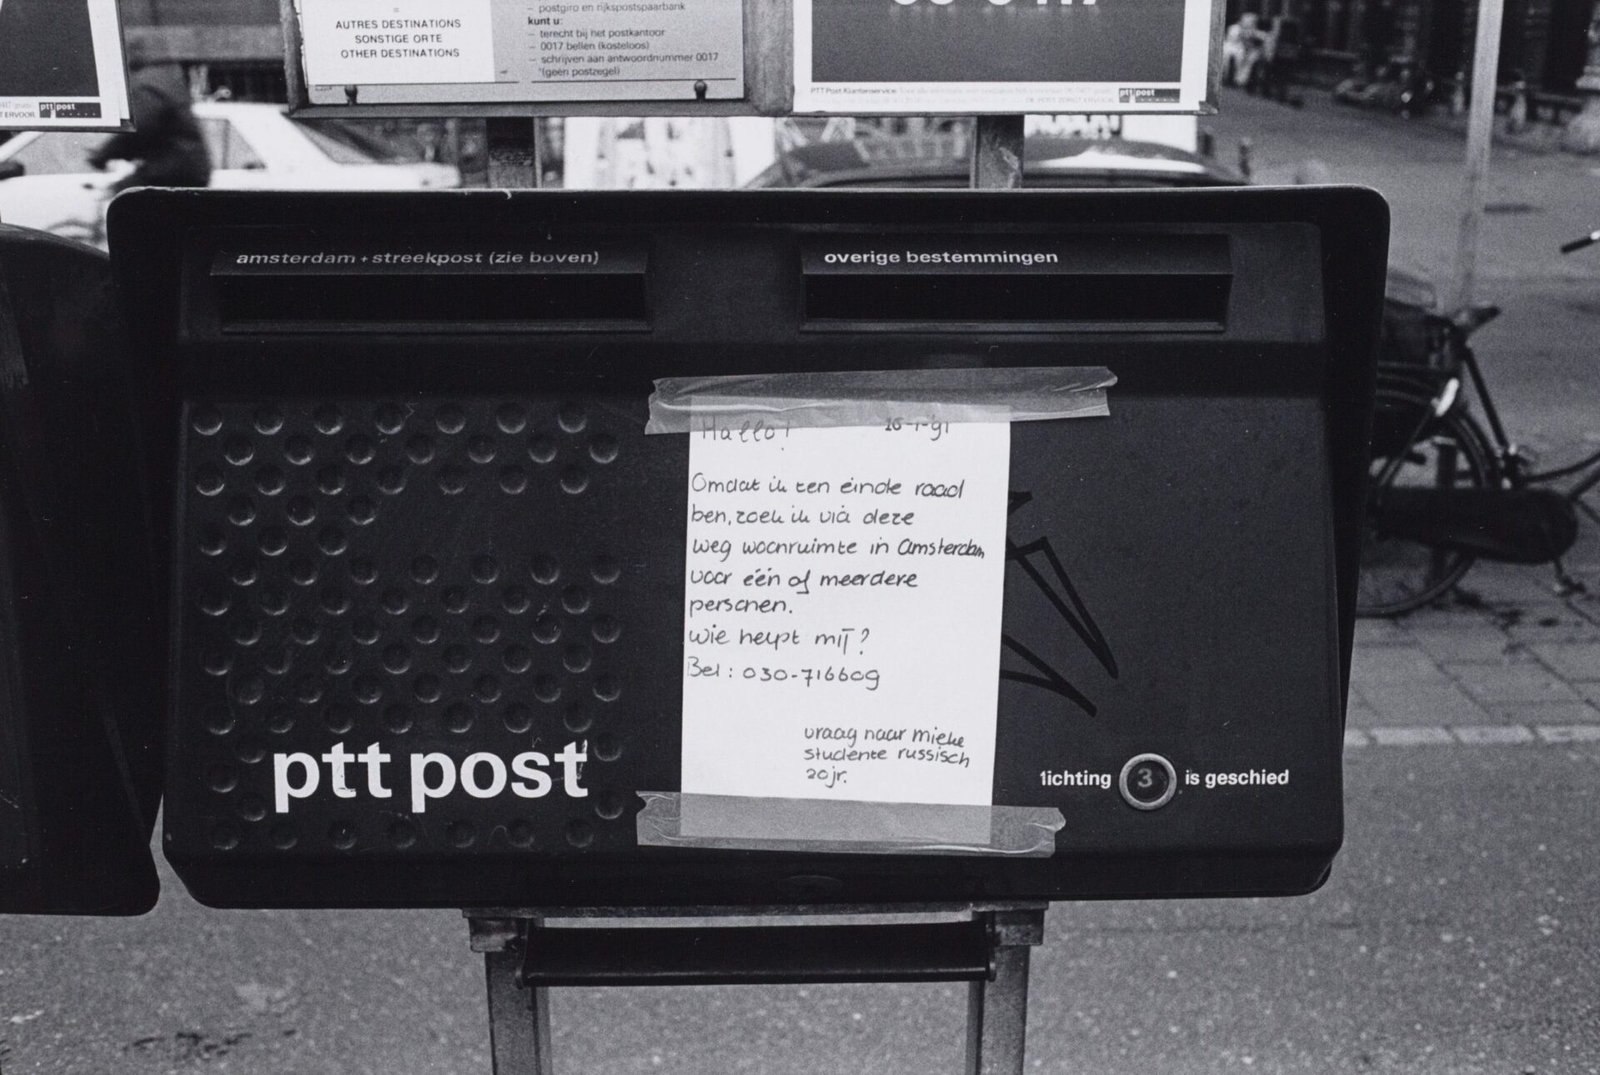 AUTRES DESTINATIONS
SONSTIGE ORTE
OTHER DESTINATIONS
– postgiro en rijkspostspaarbank
kunt u:
– terecht bij het postkantoor
– 0017 bellen (kosteloos)
– schrijven aan antwoordnummer 0017
(geen postzegel)
ptt post
T ERVOOR
PTT Post Klantenservice.
ptt post
amsterdam + streekpost (zie boven)
overige bestemmingen
Hallo!
Omdat ik ten einde raad
ben, zoek ik via deze
weg woonruimte in Amsterdam
voor één of meerdere
personen.
Wie helpt mij?
Bel: 030-716609
vraag naar mieke
studente russisch
20jr.
ptt post
lichting 3 is geschied